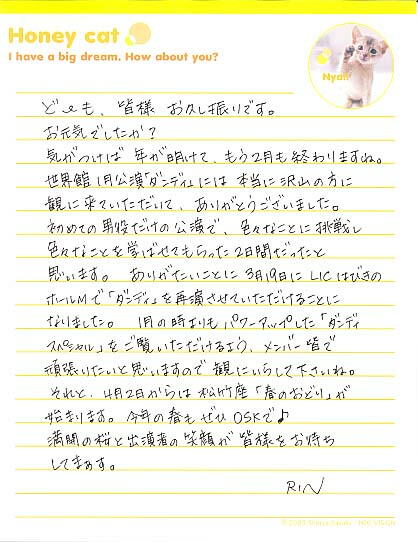 Honey cat
I have a big dream. How about you?
Nya!!
ども、皆様 お久し振りです。
お元気でしたか?
気がつけば 年が明けて、もう2月も終わりますね。
世界館1月公演「ダンディ」には 本当に沢山の方に
観に来ていただいて、ありがとうございました。
初めての男役だけの公演で、色々なことに挑戦し
色々なことを学ばせてもらった2日間だったと
思います。 ありがたいことに 3月19日に LICはびきの
ホールMで「ダンディ」を再演させていただけることに
なりました。 1月の時よりも パワーアップした「ダンディ
スペシャル」を ご覧いただけるよう、メンバー皆で
頑張りたいと思いますので 観にいらして下さいね。
それと、4月2日からは 松竹座「春のおどり」が
始まります。 今年の春も ぜひ OSKで♪
満開の桜と出演者の笑顔が 皆様をお待ち
してまぁす。
RIN